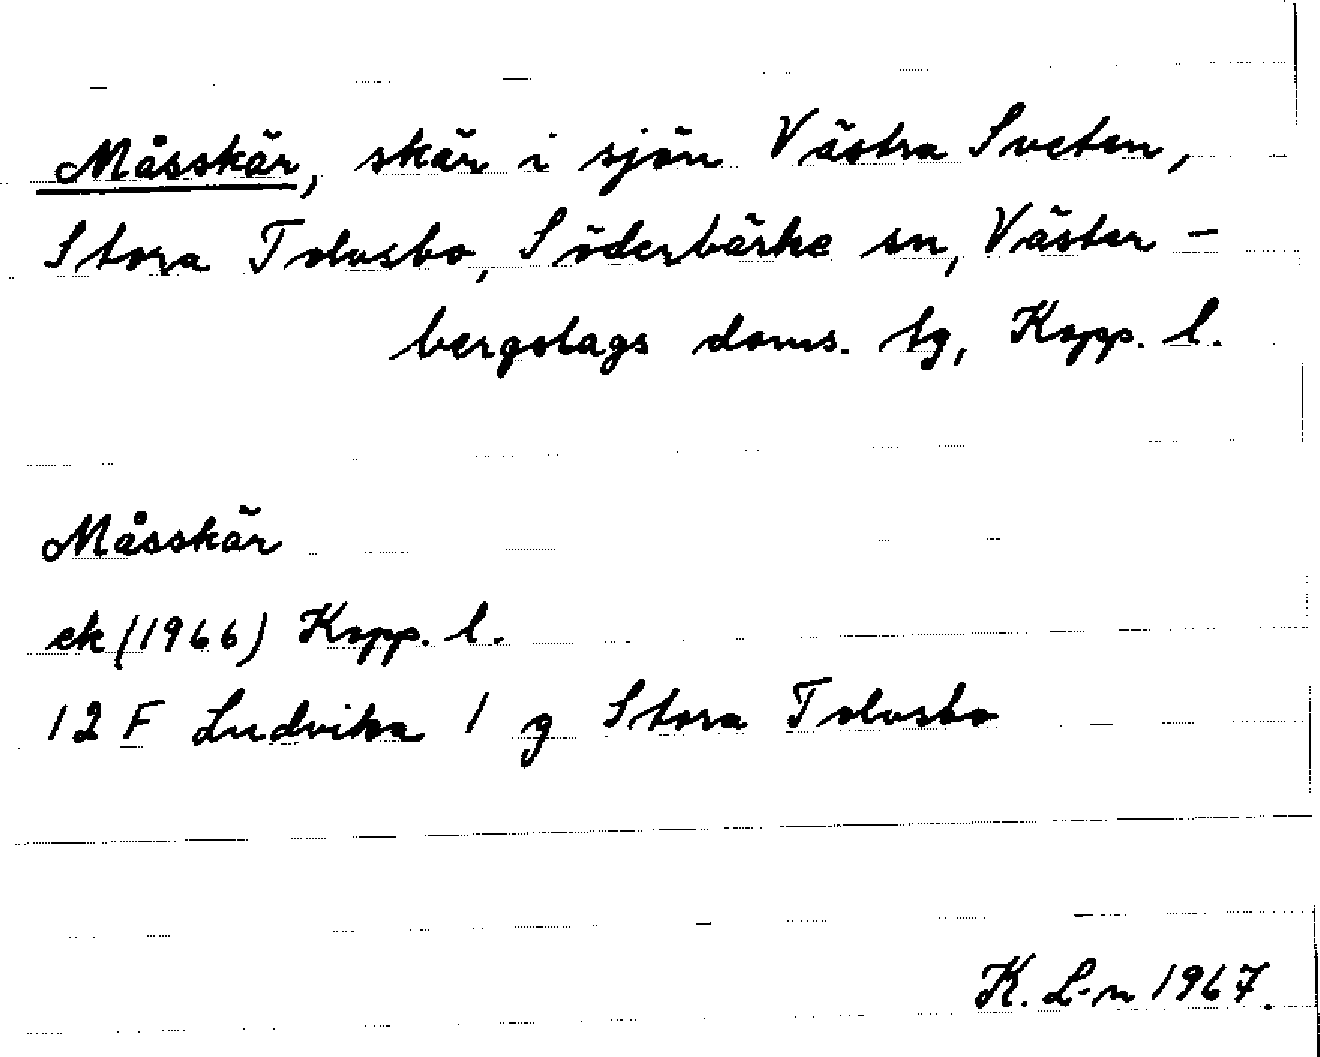 Måsskär, skär i sjön Västra Sveten,
Stora Tolvsbo, Söderbärke sn, Väster-
bergslags doms. tg, Kopp. l.
Måsskär
ek (1966) Kopp. l.
12 F Ludvika 1 g Stora Tolvsbo
K. L-n 1967.